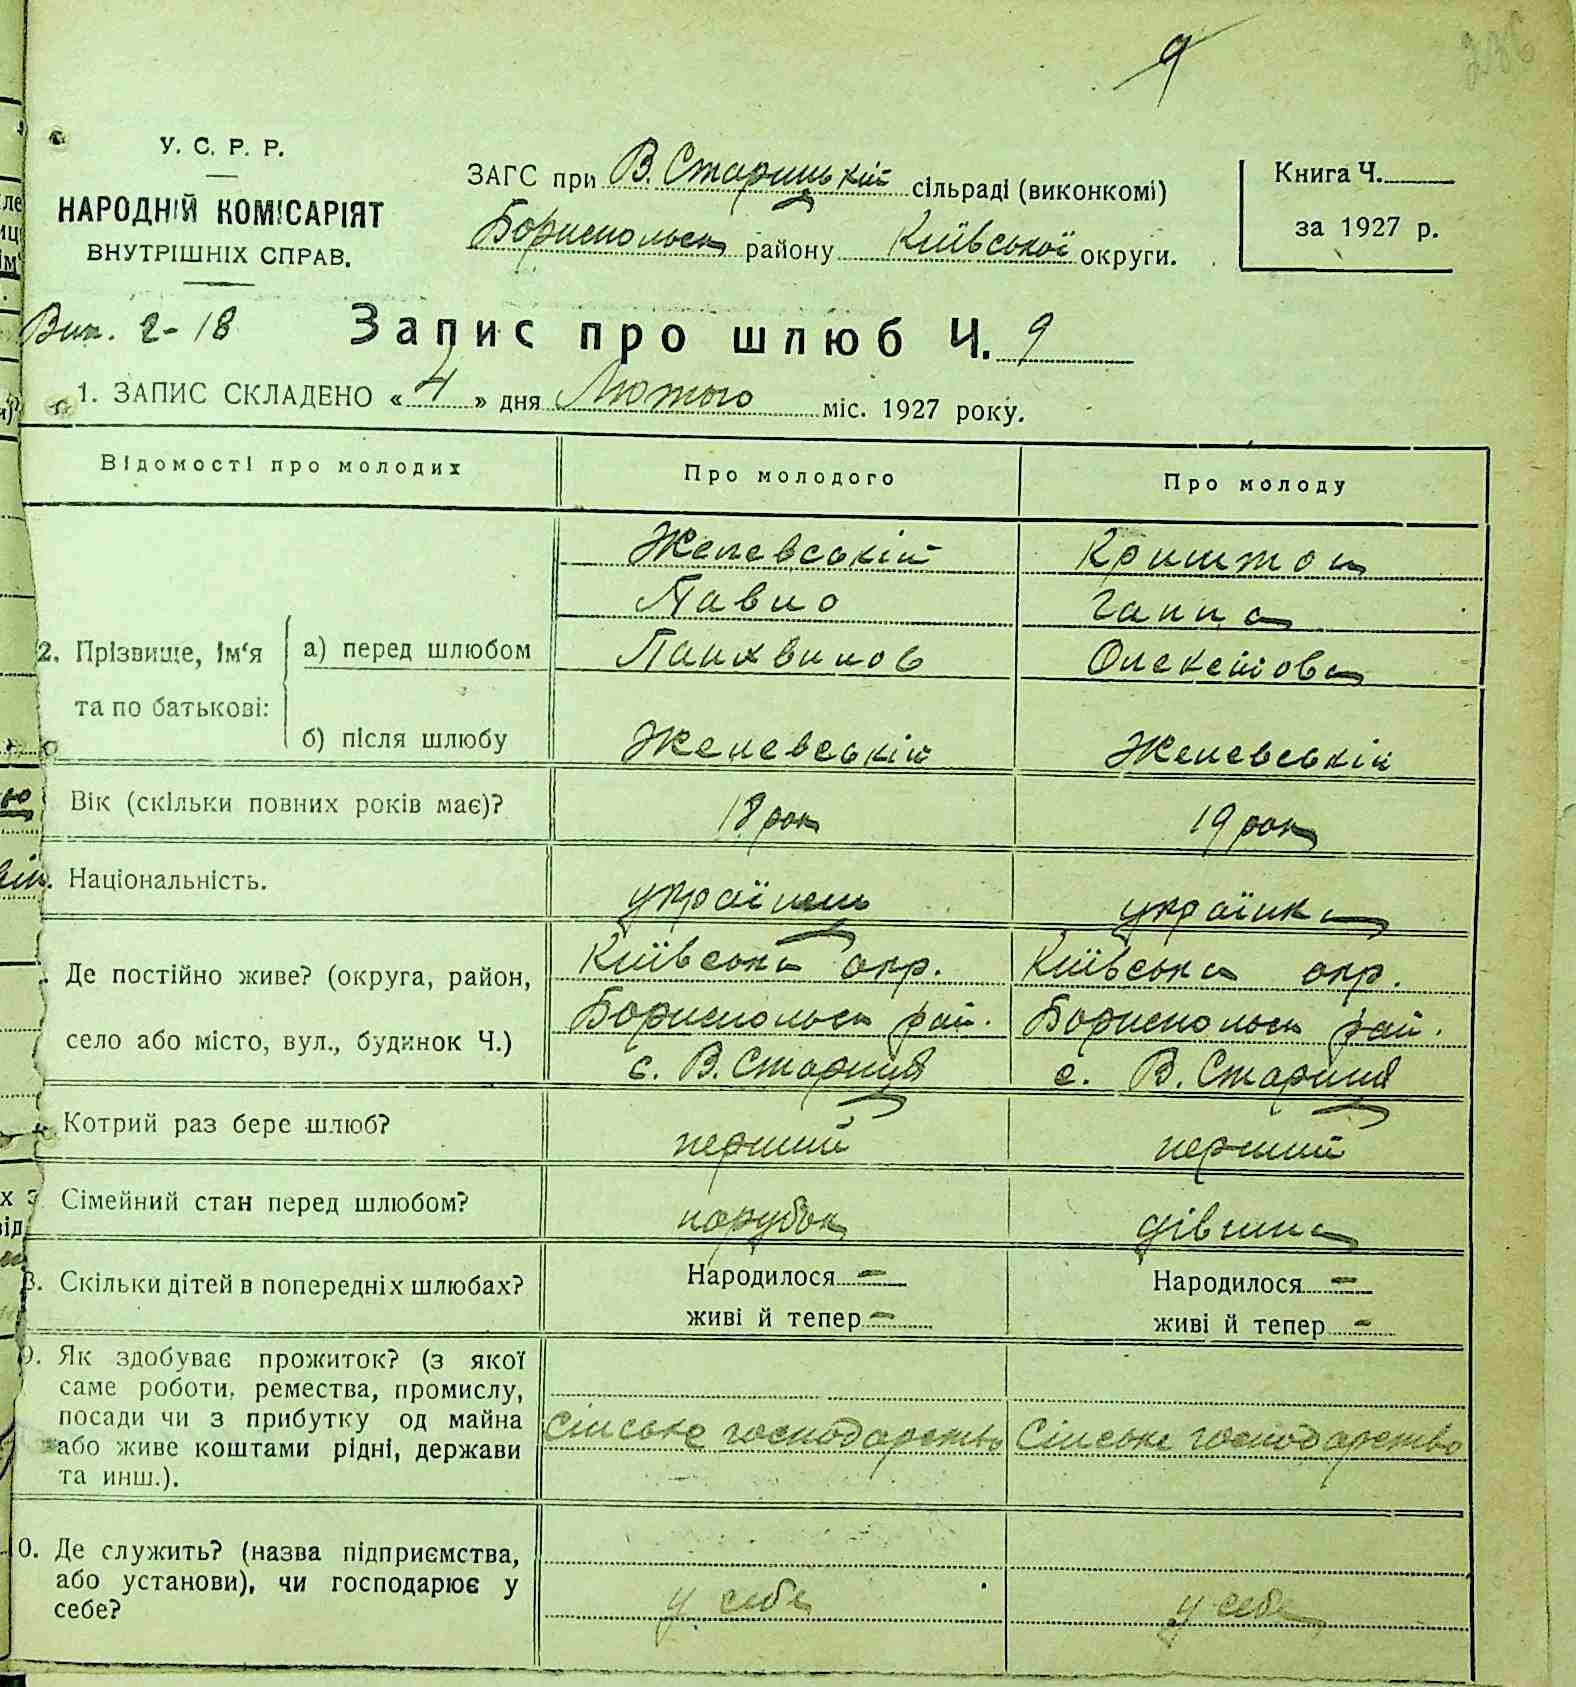 9
236
У. С. Р. Р.
НАРОДНІЙ КОМІСАРІЯТ
ВНУТРІШНІХ СПРАВ.
ЗАГС при В. Старицькій сільраді (виконкомі)
Бориспольськ району Київської округи.
Книга Ч.
за 1927 р.
Вип. 2-18
Запис про шлюб Ч. 9
1. ЗАПИС СКЛАДЕНО « 4 » дня Лютого міс. 1927 року.
Відомості про молодих Про молодого Про молоду
Желевській Криштоп
Павло Ганна
2. Прізвище, ім'я а) перед шлюбом Панхвилов Олексійова
та по батькові:
б) після шлюбу Желевській Желевській
Вік (скільки повних років має)? 18 рок 19 рок
Національність. українець українка
Київська окр. Київська окр.
Де постійно живе? (округа, район, Бориспольськ рай. Бориспольськ рай.
село або місто, вул., будинок Ч.) с. В. Стариця с. В. Стариця
Котрий раз бере шлюб? перший перший
Сімейний стан перед шлюбом? парубок дівчина
8. Скільки дітей в попередніх шлюбах? Народилося — Народилося —
живі й тепер — живі й тепер —
9. Як здобуває прожиток? (з якої
саме роботи, ремества, промислу,
посади чи з прибутку од майна Сільське господарство Сільське господарство
або живе коштами рідні, держави
та инш.).
0. Де служить? (назва підприємства,
або установи), чи господарює у
себе? у себе у себе